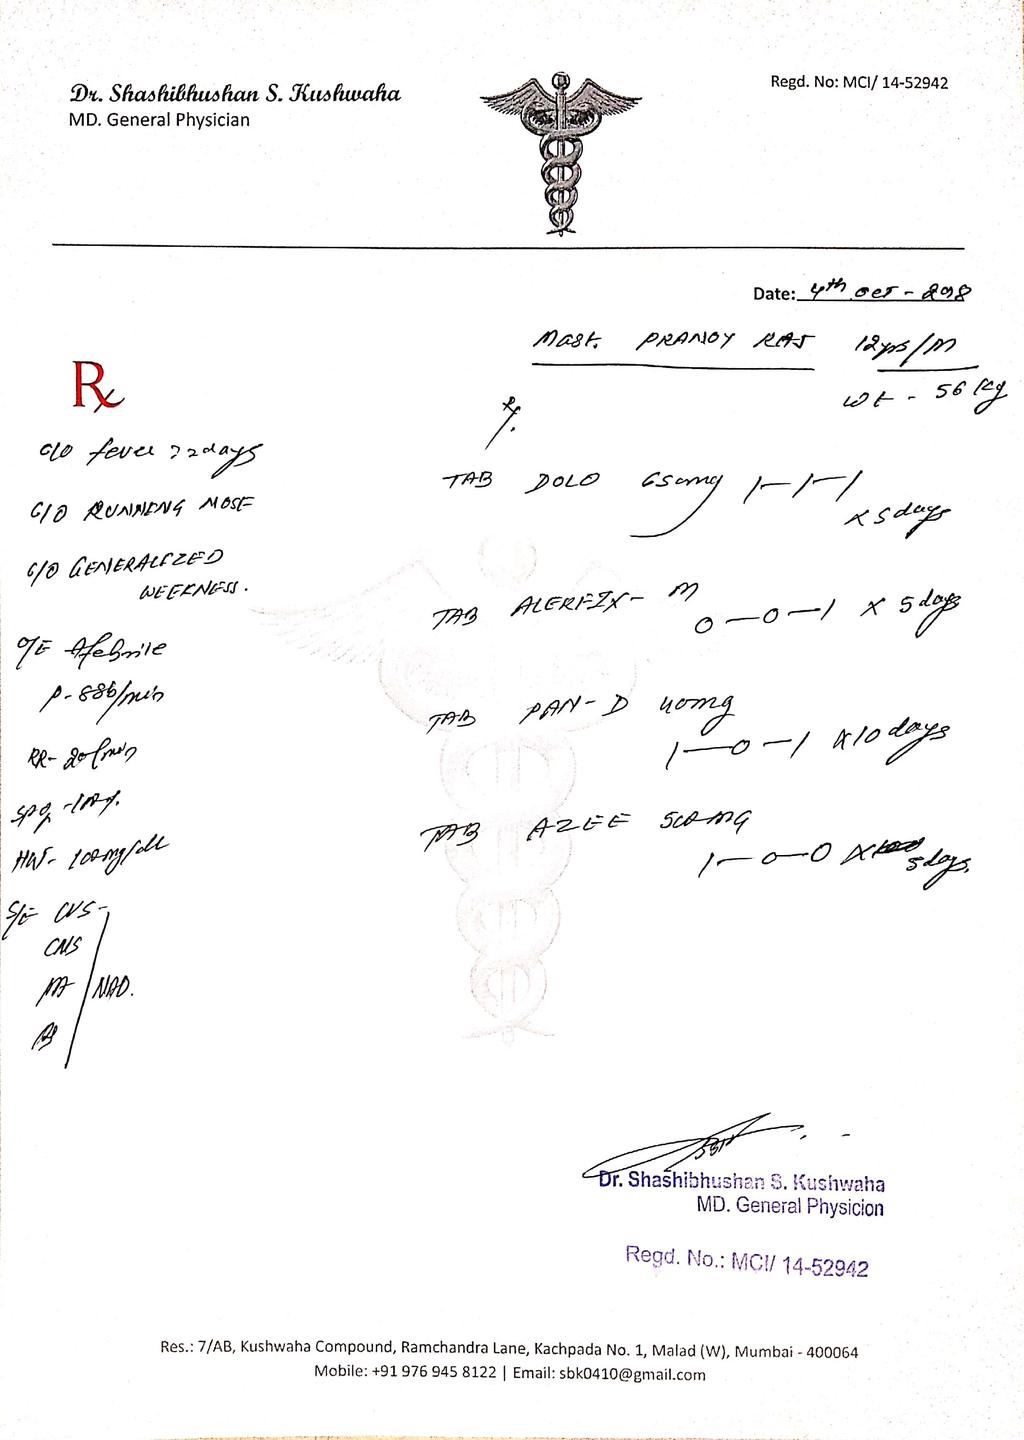 Dr. Shashibhushan S. Kushwaha
MD. General Physician
Regd. No: MCI/ 14-52942
Date: 4th oct - 2018
Mast. PRANOY RAJ 12yrs/M
Wt - 56 kg
Rx
C/O fever 2 days
C/O RUNNING NOSE
C/O GENERALIZED
WEEKNESS.
O/E Afebrile
P - 88b/min
RR - 20/min
SPO2 - 100%
- 100mg/dl
S/E CVS -
CNS
PA NAD.
RS
Rx.
TAB DOLO 650mg 1-1-1
x 5 days
TAB ALERFIX - M
0-0-1 x 5 days
TAB PAN-D 40mg
1-0-1 x 10 days
TAB AZEE 500MG
1-0-0 x 5 days.
Dr. Shashibhushan S. Kushwaha
MD. General Physicion
Regd. No.: MCI/ 14-52942
Res.: 7/AB, Kushwaha Compound, Ramchandra Lane, Kachpada No. 1, Malad (W), Mumbai - 400064
Mobile: +91 976 945 8122 | Email: sbk0410@gmail.com